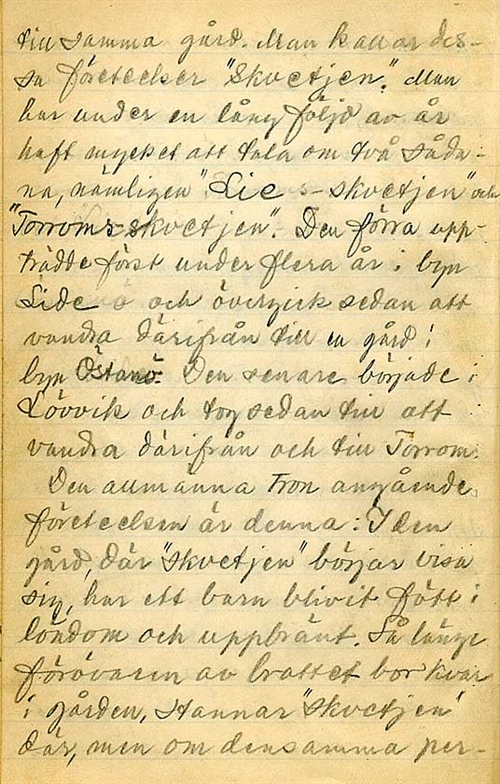 till samma gård. Man kallar des-
sa företeelser "Skvetjen". Man
har under en lång följd av år
haft mycket att tala om två såda-
na, nämligen "Lie s-skvetjen" och
"Torroms-skvetjen". Den förra upp-
trädde först under flera år i byn
Lide och övergick sedan att
vandra därifrån till en gård i
byn Östanö. Den senare började i
Lövvik och tog sedan till att
vandra därifrån och till Torrom.
Den allmänna tron angående
företeelsen är denna: I den
gård, där "skvetjen" börjar visa
sig, har ett barn blivit fött i
löndom och uppbränt. Så länge
förövaren av brottet bor kvar
i gården, stannar "skvetjen"
där, men om densamma per-